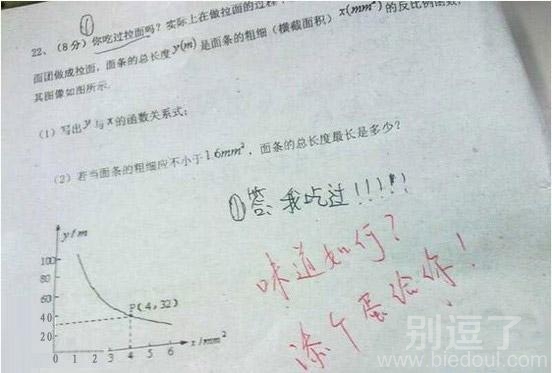 ①
22、(8分)你吃过拉面吗？实际上在做拉面的过程
面团做成拉面，面条的总长度y(m)是面条的粗细（横截面积）x(mm²)的反比例函数，
其图像如图所示.
(1) 写出y与x的函数关系式；
(2) 若当面条的粗细应不小于1.6mm²，面条的总长度最长是多少？
①答：我吃过!!!!!
味道如何？
添个蛋给你！
y/m
100
80
60
40
20
P(4,32)
0 1 2 3 4 5 6 x/mm²
别逗了
www.biedoul.com